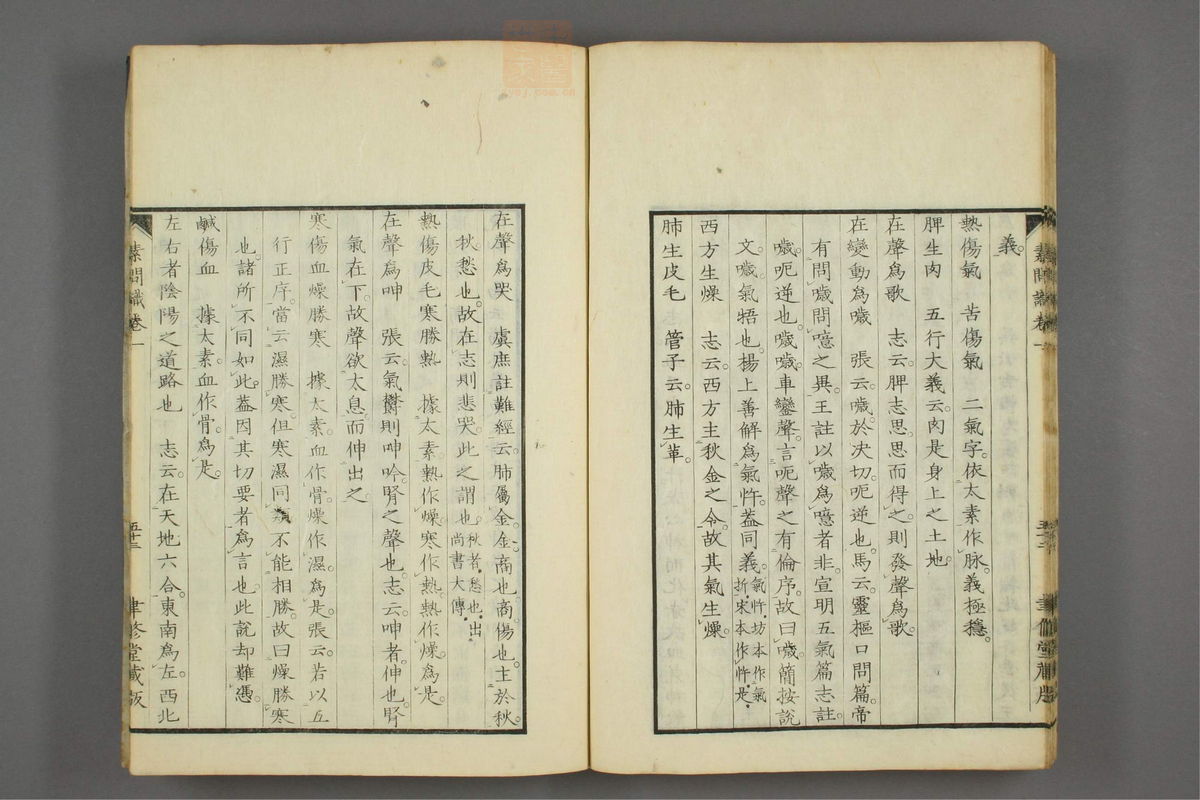 義。
熱傷氣　苦傷氣　二氣字。依太素作脉。義極穩。
脾生肉　五行大義云。肉是身上之土地。
在聲爲歌　志云。脾志思。思而得之。則發聲爲歌。
在變動爲噦　張云。噦。於決切。呃逆也。馬云。靈樞口問篇。帝
有問噦問噫之異。王註以噦爲噫者非。宣明五氣篇志註。
噦。呃逆也。噦噦。車鑾聲。言呃聲之有倫序。故曰噦。簡按說
文。噦。氣牾也。楊上善解爲氣忤。蓋同義。氣忤。坊本作氣折。宋本作忤。是。
西方生燥　志云。西方主秋金之令。故其氣生燥。
肺生皮毛　管子云。肺生革。
素問識卷一
在聲爲哭　虞庶註難經云。肺屬金。金。商也。商。傷也。主於秋。
秋。愁也。故在志則悲哭。此之謂也。秋者。愁也。出尚書大傳。
熱傷皮毛寒勝熱　據太素。熱作燥。寒作熱。熱作燥。爲是。
在聲爲呻　張云。氣鬱則呻吟。腎之聲也。志云。呻者。伸也。腎
氣在下。故聲欲太息。而伸出之。
寒傷血燥勝寒　據太素。血作骨。燥作濕。爲是。張云。若以五
行正序。當云濕勝寒。但寒濕同類。不能相勝。故曰燥勝寒
也。諸所不同如此。蓋因其切要者爲言也。此說却難憑。
鹹傷血　據太素。血作骨。爲是。
左右者陰陽之道路也　志云。在天地六合。東南爲左。西北
素問識卷一　五十三　聿修堂藏版